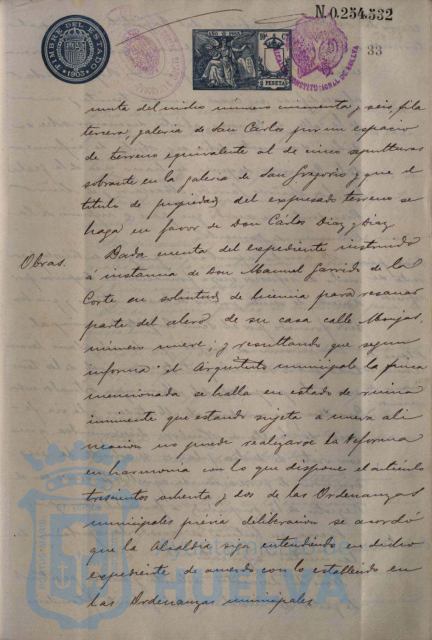 N.0.254.532
TIMBRE DEL ESTADO
1903
AÑO D 1903
PESETAS
CONSTITUCIONAL DE HUELVA
33
nente del nicho número cincuenta y seis, fila
tercera, galería de San Cárlos por un espacio
de terreno equivalente al de cinco sepulturas
sobrante en la galería de San Gregorio y que el
título de propiedad del expresado terreno se
haga en favor de Don Cárlos Diaz y Diaz
Obras.
Dada cuenta del expediente instruido
á instancia de Don Manuel Garrido de la
Corte en solicitud de licencia para resanar
parte del alero de su casa calle Monjas,
número nueve; y resultando que segun
informa el Arquitecto municipal la finca
mencionada se halla en estado de ruina
inminente que estando sujeta á nueva ali
neacion no puede realizarse la reforma
en harmonia con lo que dispone el artículo
trescientos ochenta y dos de las Ordenanzas
municipales previa deliberacion se acordó
que la Alcaldia siga entendiendo en dicho
expediente de acuerdo con lo establecido en
las Ordenanzas municipales.
HUELVA